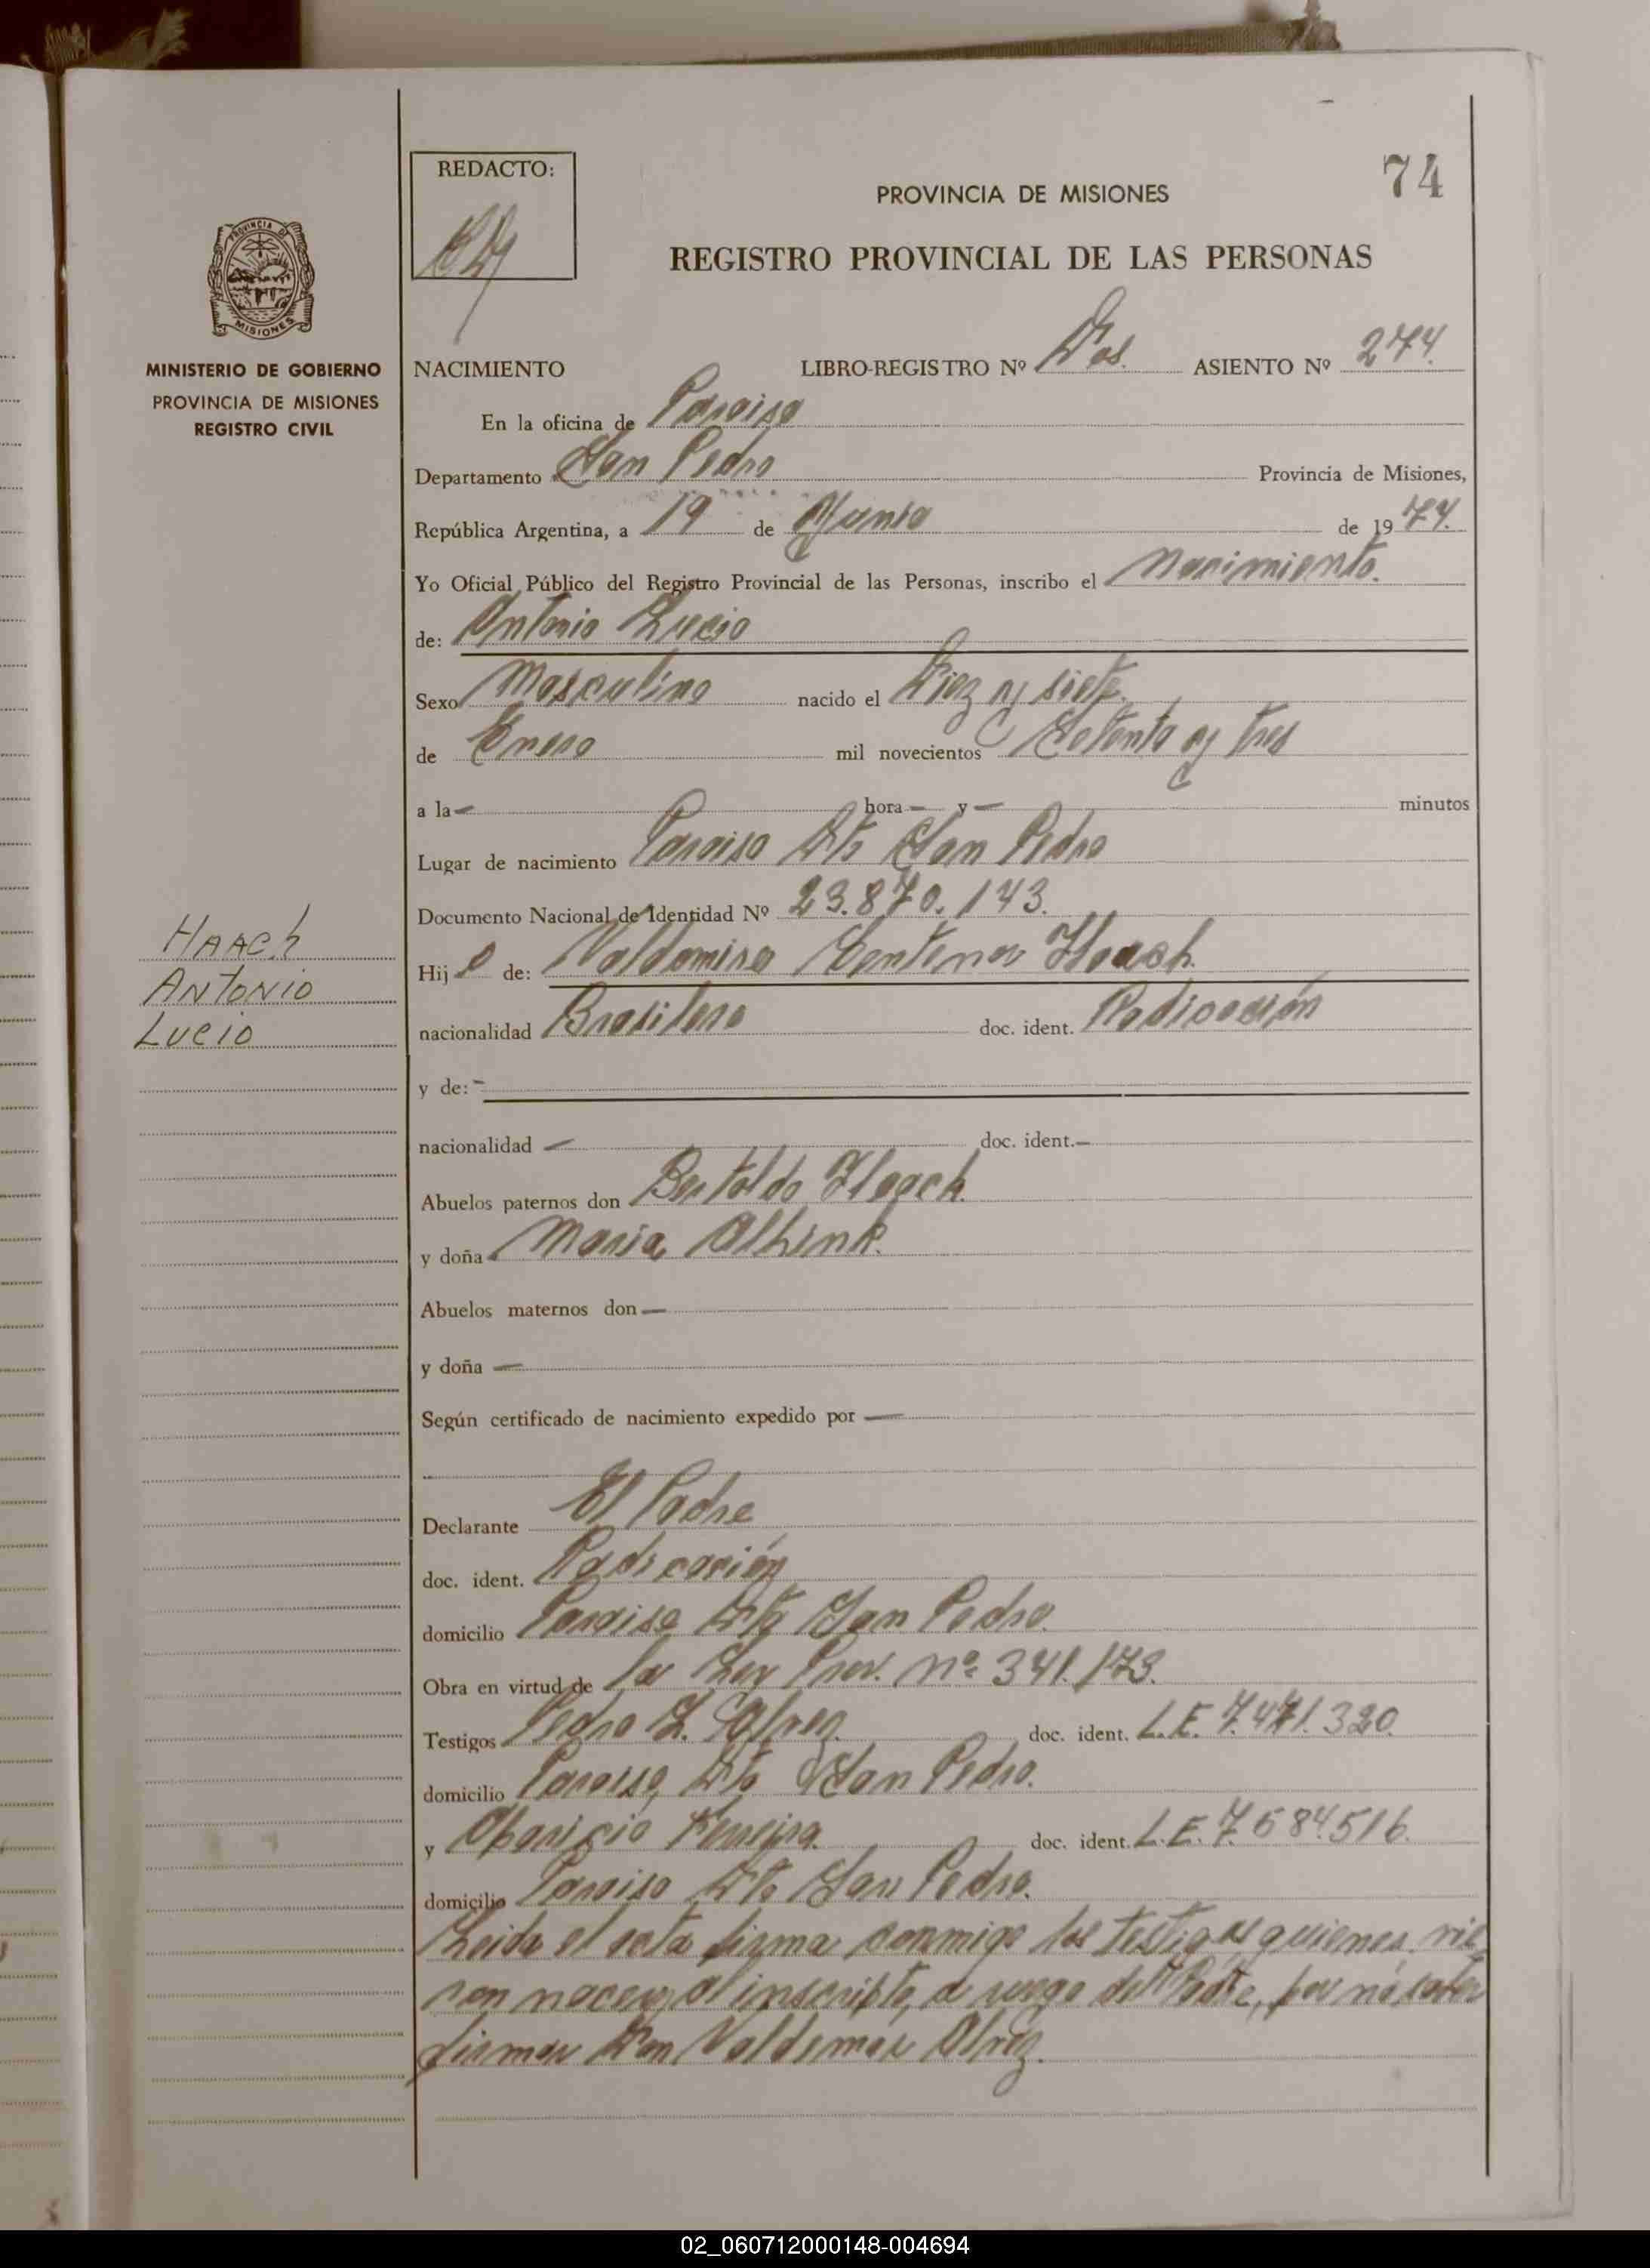 74
REDACTO:
PROVINCIA DE MISIONES
REGISTRO PROVINCIAL DE LAS PERSONAS
PROVINCIA DE
MISIONES
MINISTERIO DE GOBIERNO
PROVINCIA DE MISIONES
REGISTRO CIVIL
NACIMIENTO LIBRO-REGISTRO Nº Dos. ASIENTO Nº 274
En la oficina de Paraiso
Departamento San Pedro Provincia de Misiones,
República Argentina, a 19 de Junio de 1974.
Yo Oficial Público del Registro Provincial de las Personas, inscribo el Nacimiento.
de: Antonio Lucio
Sexo Masculino nacido el Diez y siete.
de Enero mil novecientos Setenta y tres
a la — hora — y — minutos
Lugar de nacimiento Paraiso Dto San Pedro
Documento Nacional de Identidad Nº 23.870.143.
Hijo de: Valdomiro Haach.
HAACh
ANTONIO
LUCIO
nacionalidad Brasilero doc. ident. Radicación
y de: -
nacionalidad — doc. ident. —
Abuelos paternos don Bertoldo Haach.
y doña Maria
Abuelos maternos don —
y doña —
Según certificado de nacimiento expedido por —
Declarante El Padre
doc. ident. Radicación
domicilio Paraiso Dto San Pedro.
Obra en virtud de la Ley Prov. Nº 341/73.
Testigos Pedro doc. ident. L.E. 7.471.320.
domicilio Paraiso, Dto San Pedro.
y Aparicio Ferreira. doc. ident. L.E. 7.684.516.
domicilio Paraiso Dto San Pedro.
Leida el acta firma conmigo los testigos quienes vie
ron nacer al inscripto, a ruego del Padre, por no saber
firmar Don Valdemar
02_060712000148-004694